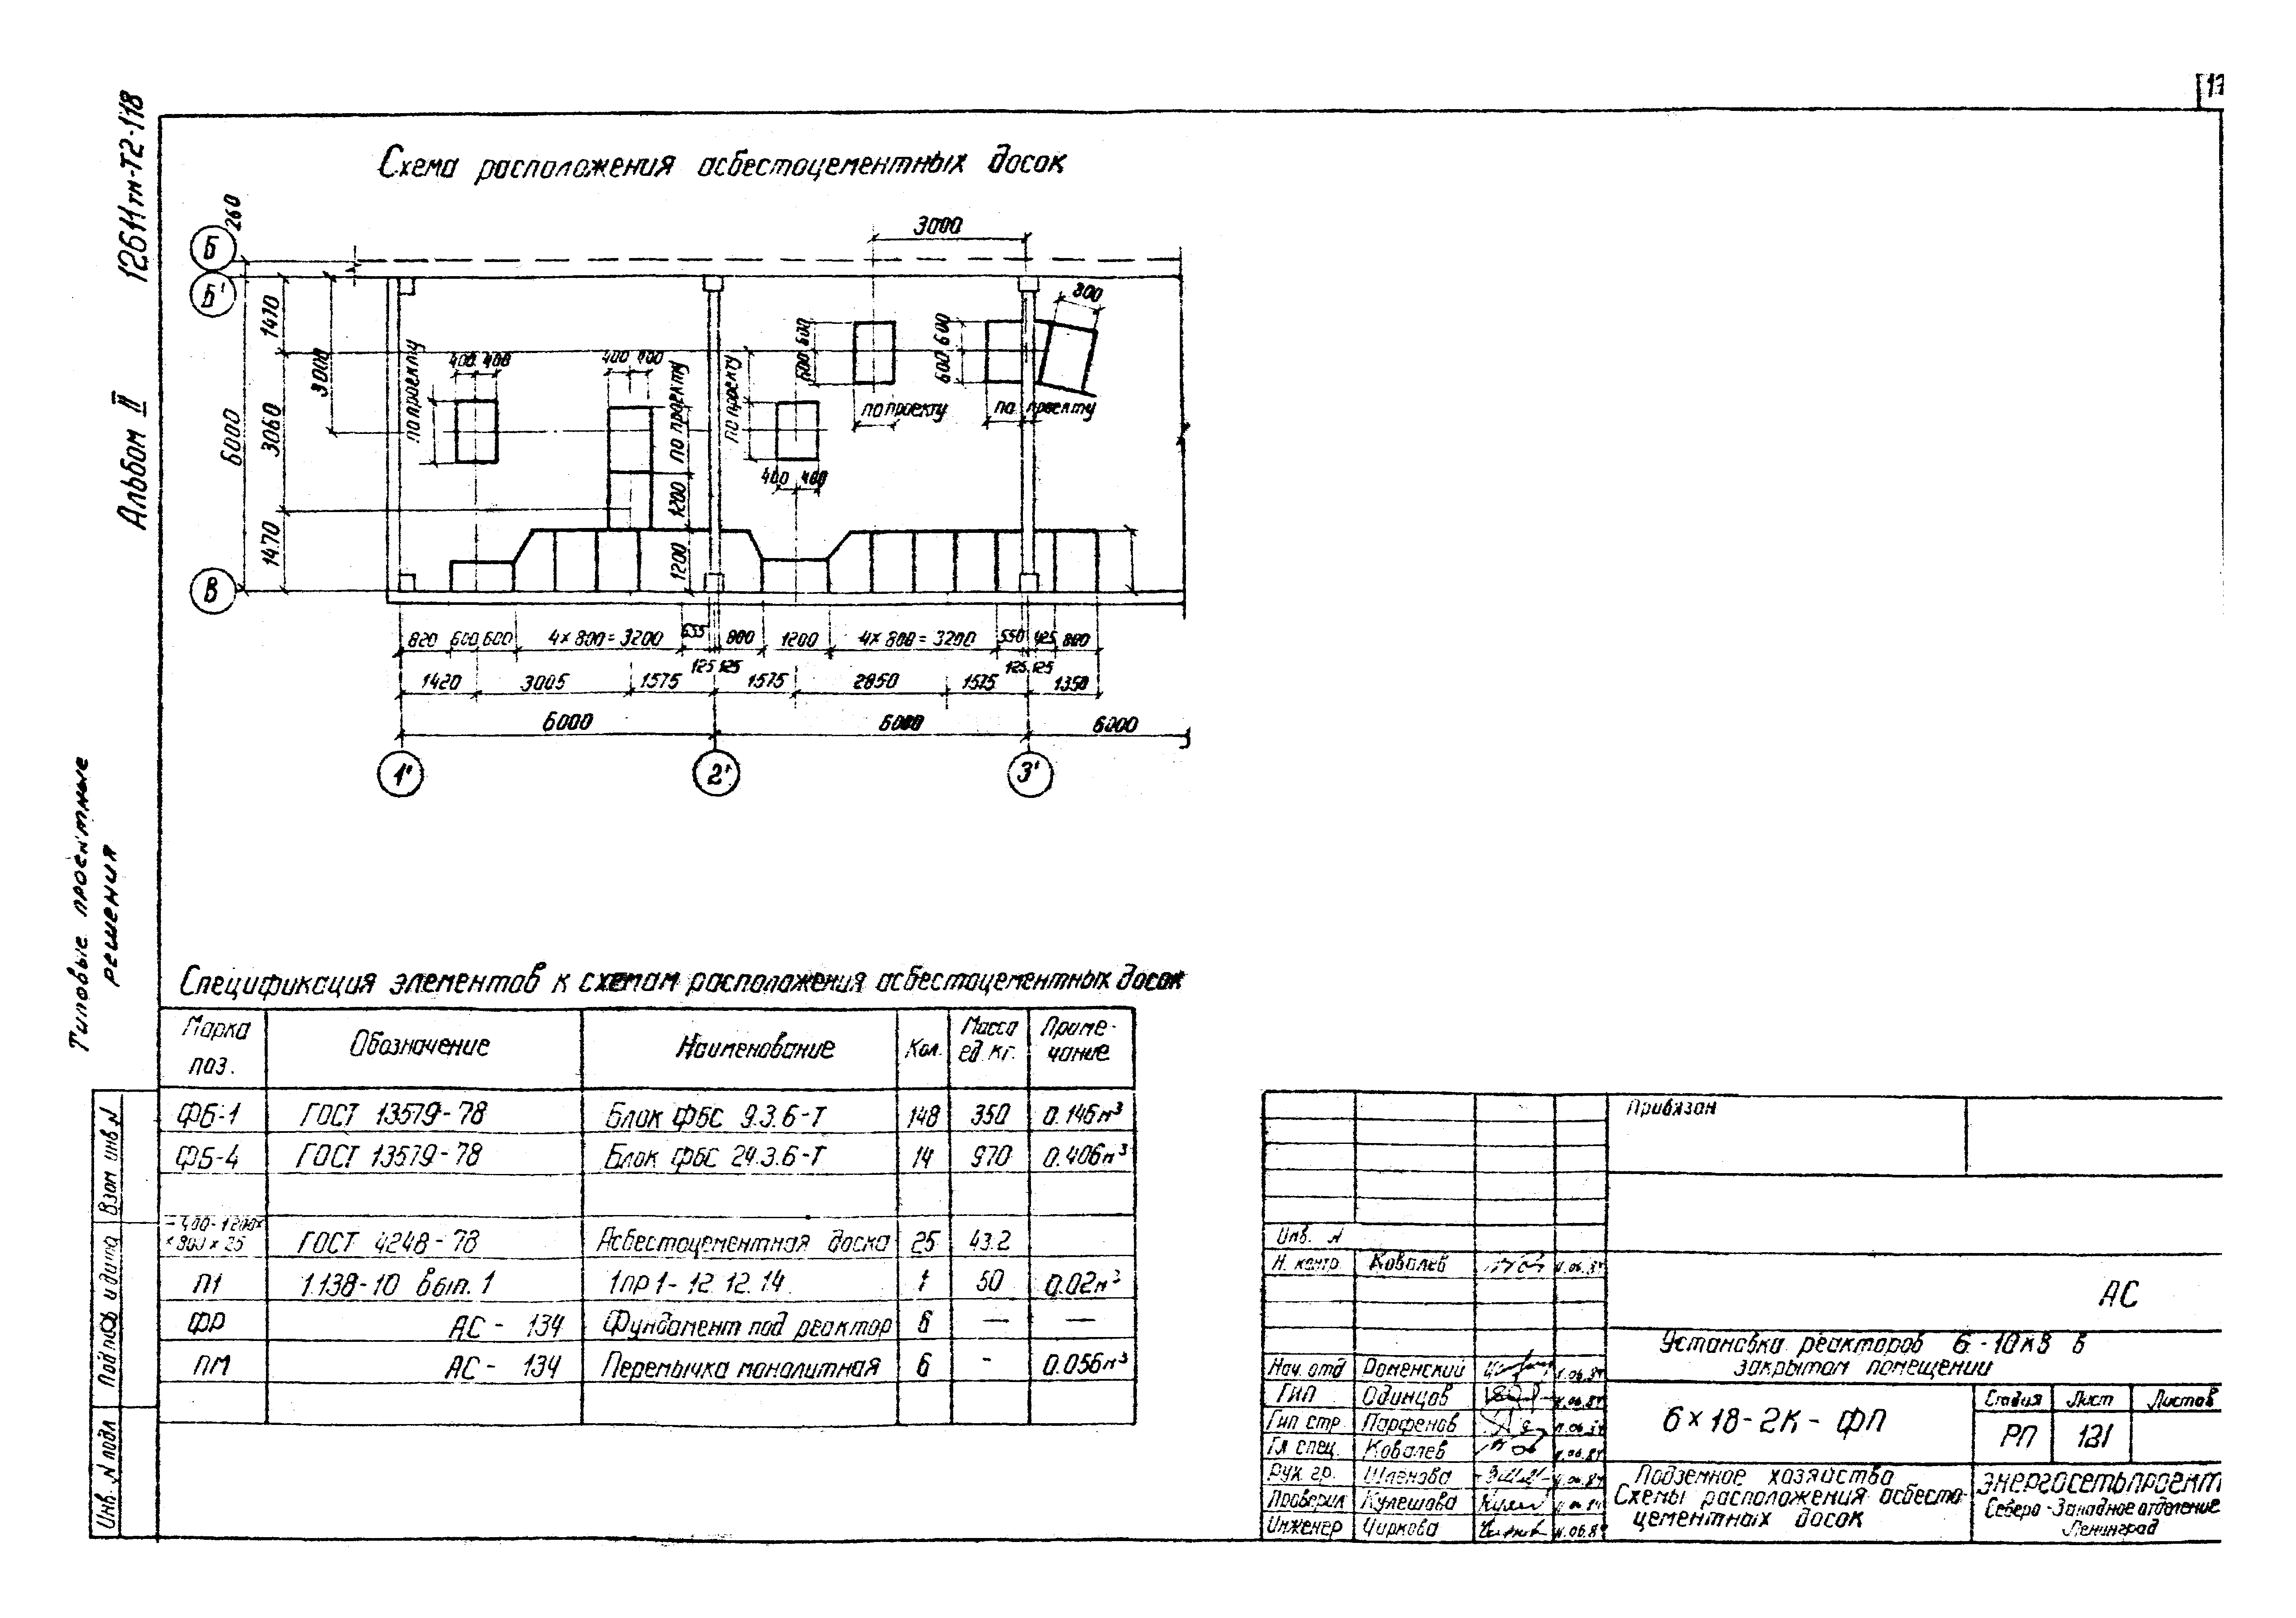 17
12611тм-Т2-118
Альбом II
Типовые проектные
решения
Схема расположения асбестоцементных досок
Б
260
Б'
В
3000
800
1470
3000
3060
6000
1470
по проекту
400 400
400 400
по проекту
1200
1200
по проекту
600 600
600 600
по проекту
по проекту
400 400
820 600 600 4×800=3200 655 800 1200 4×800=3200 550 425 800
125 125 125 125
1420 3005 1575 1575 2850 1575 1350
6000 6000 6000
1' 2' 3'
Спецификация элементов к схемам расположения асбестоцементных досок
Марка поз. Обозначение Наименование Кол. Масса ед. кг. Приме-чание
ФБ-1 ГОСТ 13579-78 Блок ФБС 9.3.6-Т 148 350 0.146м³
ФБ-4 ГОСТ 13579-78 Блок ФБС 24.3.6-Т 14 970 0.406м³
×800×25 ГОСТ 4248-78 Асбестоцементная доска 25 43.2
П1 1.138-10 вып. 1 1пр1-12.12.14 1 50 0.02м³
ФР АС-134 Фундамент под реактор 6 — —
ПМ АС-134 Перемычка монолитная 6 - 0.056м³
Взам инв. N
Подпись и дата
Инв. N подл
Привязан
Инв. N
Н. контр. Ковалев
АС
Установка реакторов 6-10кВ в
закрытом помещении
Нач. отд Роменский
ГИП Одинцов
Гип стр. Парфенов
Гл спец. Ковалев
Рук. гр. Шленова
Проверил Кулешова
Инженер Чиркова
6×18-2К-ФП
Стадия Лист Листов
РП 121
Подземное хозяйство
Схемы расположения асбесто-
цементных досок
ЭНЕРГОСЕТЬПРОЕКТ
Северо-Западное отделение
Ленинград